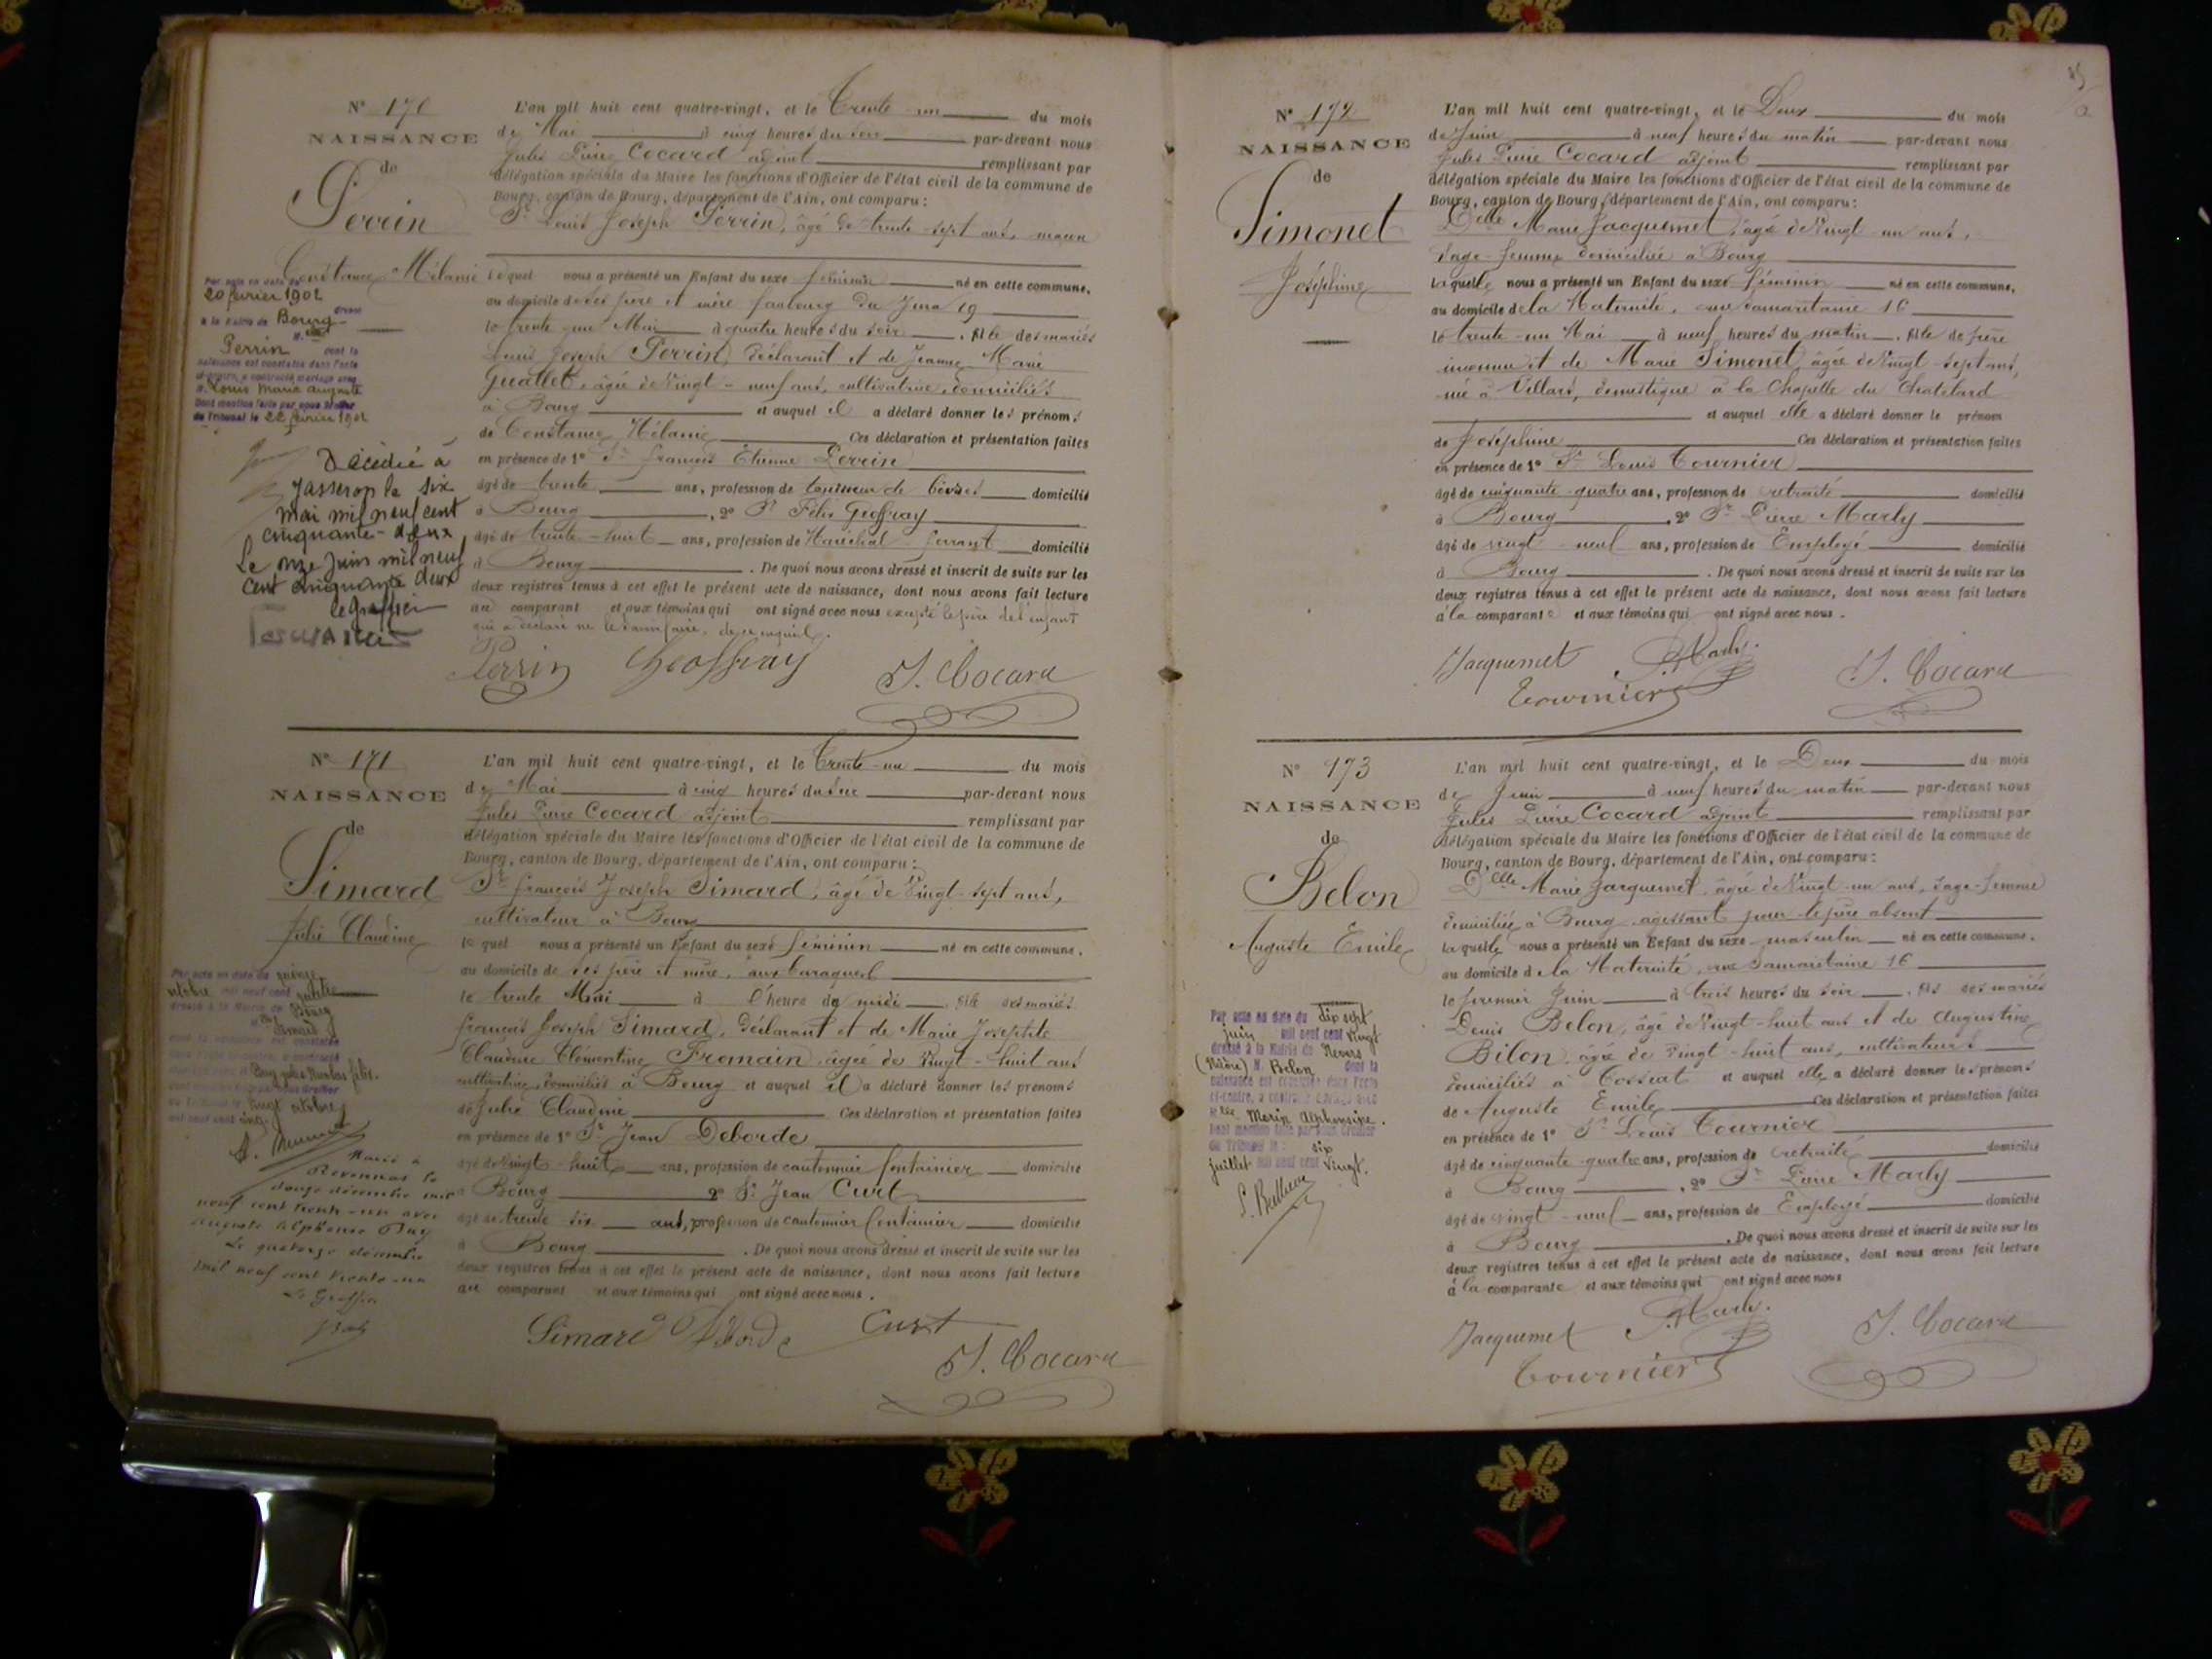 N° 170
NAISSANCE
de
Perrin
Constance Mélanie
Par acte en date du
20 février 1902
à la Mairie de Bourg
Perrin dont la
naissance est constatée dans l'acte
ci-contre, a contracté mariage avec
Louis Marie Auguste
Dont mention faite par nous Greffier
du Tribunal le 22 février 1902
Décédée à
Jasseron le six
mai mil neuf cent
cinquante-deux
Le onze juin mil neuf
cent cinquante deux
le Greffier
L'an mil huit cent quatre-vingt, et le Trente-un du mois
de Mai à cinq heures du soir par-devant nous
Jules Pierre Cocard adjoint remplissant par
délégation spéciale du Maire les fonctions d'Officier de l'état civil de la commune de
Bourg, canton de Bourg, département de l'Ain, ont comparu :
Sr Louis Joseph Perrin, âgé de trente-sept ans, maçon
lequel nous a présenté un Enfant du sexe féminin né en cette commune,
au domicile de ses père et mère faubourg du Jura 19
le trente-un Mai à quatre heures du soir, fille des mariés
Louis Joseph Perrin, déclarant et de Jeanne Marie
Guallet, âgée de vingt-neuf ans, cultivatrice, domiciliés
à Bourg et auquel il a déclaré donner les prénoms
de Constance Mélanie Ces déclaration et présentation faites
en présence de 1° Sr François Etienne Perrin
âgé de trente ans, profession de domicilié
à Bourg, 2° Sr Félix Geoffray
âgé de trente-huit ans, profession de Maréchal ferrant domicilié
à Bourg. De quoi nous avons dressé et inscrit de suite sur les
deux registres tenus à cet effet le présent acte de naissance, dont nous avons fait lecture
au comparant et aux témoins qui ont signé avec nous excepté le père de l'enfant
qui a déclaré ne le savoir faire, de ce enquis.
Perrin Geoffray J. Cocard
N° 171
NAISSANCE
de
Simard
Julie Claudine
Par acte en date du quinze
octobre mil neuf cent
dressé à la Mairie de Bourg
Simard
vingt octobre
Marié à
Revonnas le
douze décembre mil
neuf cent trente-un avec
Auguste Alphonse Buy
Le quatorze décembre
mil neuf cent trente-un
Le Greffier
L'an mil huit cent quatre-vingt, et le Trente-un du mois
de Mai à cinq heures du soir par-devant nous
Jules Pierre Cocard adjoint remplissant par
délégation spéciale du Maire les fonctions d'Officier de l'état civil de la commune de
Bourg, canton de Bourg, département de l'Ain, ont comparu :
Sr François Joseph Simard, âgé de Vingt-sept ans,
cultivateur à Bourg
lequel nous a présenté un Enfant du sexe féminin né en cette commune,
au domicile de ses père et mère, aux baraques
le trente Mai à l'heure de midi, fille des mariés
François Joseph Simard, déclarant et de Marie Josephte
Claudine Clémentine Fromain, âgée de Vingt-huit ans
cultivatrice, domiciliés à Bourg et auquel il a déclaré donner les prénoms
de Julie Claudine. Ces déclaration et présentation faites
en présence de 1° Sr Jean Deborde
âgé de vingt-huit ans, profession de cantonnier fontainier domicilié
à Bourg 2° Sr Jean Curt
âgé de trente six ans, profession de cantonnier fontainier domicilié
à Bourg. De quoi nous avons dressé et inscrit de suite sur les
deux registres tenus à cet effet le présent acte de naissance, dont nous avons fait lecture
au comparant et aux témoins qui ont signé avec nous.
Simard Deborde Curt
J. Cocard
N° 172
NAISSANCE
de
Simonet
Joséphine
L'an mil huit cent quatre-vingt, et le Deux du mois
de Juin à neuf heures du matin par-devant nous
Jules Pierre Cocard adjoint remplissant par
délégation spéciale du Maire les fonctions d'Officier de l'état civil de la commune de
Bourg, canton de Bourg, département de l'Ain, ont comparu :
Delle Marie Jacquemet, âgée de Vingt-un ans,
Sage-femme domiciliée à Bourg
laquelle nous a présenté un Enfant du sexe féminin né en cette commune,
au domicile de la Maternité, rue Samaritaine 16
le trente-un Mai à neuf heures du matin, fille de père
inconnu et de Marie Simonet âgée de Vingt-sept ans,
née à Villars, domestique à la Chapelle du Chatelard
et auquel elle a déclaré donner le prénom
de Joséphine Ces déclaration et présentation faites
en présence de 1° Sr Louis Tournier
âgé de cinquante-quatre ans, profession de retraité domicilié
à Bourg, 2° Sr Pierre Marly
âgé de vingt-neuf ans, profession de Employé domicilié
à Bourg. De quoi nous avons dressé et inscrit de suite sur les
deux registres tenus à cet effet le présent acte de naissance, dont nous avons fait lecture
à la comparante et aux témoins qui ont signé avec nous.
Jacquemet P. Marly.
Tournier J. Cocard
N° 173
NAISSANCE
de
Belon
Auguste Emile
Par acte en date du dix sept
juin mil neuf cent vingt
dressé à la Mairie de Nevers
(Nièvre) M. Belon dont la
naissance est constatée dans l'acte
ci-contre, a contracté mariage avec
Morin Alphonsine.
Dont mention faite par nous Greffier
du Tribunal le six
juillet mil neuf cent vingt.
L'an mil huit cent quatre-vingt, et le Deux du mois
de Juin à neuf heures du matin par-devant nous
Jules Pierre Cocard adjoint remplissant par
délégation spéciale du Maire les fonctions d'Officier de l'état civil de la commune de
Bourg, canton de Bourg, département de l'Ain, ont comparu :
Delle Marie Jacquemet, âgée de Vingt-un ans, Sage-femme
domiciliée à Bourg agissant pour le père absent
laquelle nous a présenté un Enfant du sexe masculin né en cette commune,
au domicile de la Maternité, rue Samaritaine 16
le premier Juin à trois heures du soir, fils des mariés
Denis Belon, âgé de Vingt-huit ans et de Augustine
Bilon, âgée de vingt-huit ans, cultivateurs
domiciliés à Tossiat et auquel elle a déclaré donner les prénoms
de Auguste Emile Ces déclaration et présentation faites
en présence de 1° Sr Louis Tournier
âgé de cinquante-quatre ans, profession de retraité domicilié
à Bourg, 2° Sr Pierre Marly
âgé de vingt-neuf ans, profession de Employé domicilié
à Bourg. De quoi nous avons dressé et inscrit de suite sur les
deux registres tenus à cet effet le présent acte de naissance, dont nous avons fait lecture
à la comparante et aux témoins qui ont signé avec nous
Jacquemet P. Marly. J. Cocard
Tournier